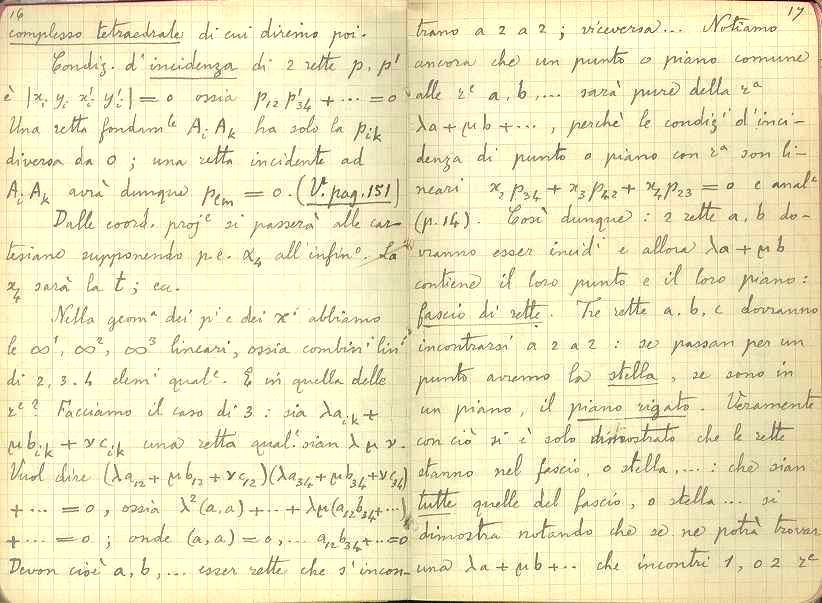 16
complesso tetraedrale di cui diremo poi.
Condiz. d'incidenza di 2 rette p, p'
è |xᵢ yᵢ x'ᵢ y'ᵢ| = 0 ossia p₁₂ p'₃₄ + ... = 0
Una retta fondamˡᵉ AᵢAₖ ha solo la pᵢₖ
diversa da 0; una retta incidente ad
AᵢAₖ avrà dunque pₗₘ = 0. (Vⁱ pag. 151)
Dalle coord. projᵉ si passerà alle car-
tesiane supponendo p.e. α₄ all'infinᵒ. La
x₄ sarà la t; ecc.
Nella geomᵃ dei pⁱ e dei πⁱ abbiamo
le ∞¹, ∞², ∞³ lineari, ossia combinⁱ linⁱ
di 2, 3, 4 elemⁱ qualᵉ. E in quella delle
rᵉ? Facciamo il caso di 3: sia λaᵢₖ +
μbᵢₖ + νcᵢₖ una retta qualⁱ sian λ μ ν.
Vuol dire (λa₁₂ + μb₁₂ + νc₁₂)(λa₃₄ + μb₃₄ + νc₃₄)
+ ... = 0, ossia λ²(a,a) + ... + λμ(a₁₂b₃₄ + ...)
+ ... = 0; onde (a,a) = 0, ... a₁₂b₃₄ + ... = 0
Devon cioè a, b, ... esser rette che s'incon-
17
trano a 2 a 2; viceversa... Notiamo
ancora che un punto o piano comune
alle rᵉ a, b, ... sarà pure della rᵃ
λa + μb + ..., perchè le condizⁱ d'inci-
denza di punto o piano con rᵃ son li-
neari x₂p₃₄ + x₃p₄₂ + x₄p₂₃ = 0 e analᵉ
(p. 14). Così dunque: 2 rette a, b do-
vranno esser incidⁱ e allora λa + μb
contiene il loro punto e il loro piano:
fascio di rette. Tre rette a, b, c dovranno
incontrarsi a 2 a 2: se passan per un
punto avremo la stella, se sono in
un piano, il piano rigato. Veramente
con ciò si è solo dimostrato che le rette
stanno nel fascio, o stella, ...: che sian
tutte quelle del fascio, o stella... si
dimostra notando che se ne potrà trovar
una λa + μb + ... che incontri 1, o 2 rᵉ